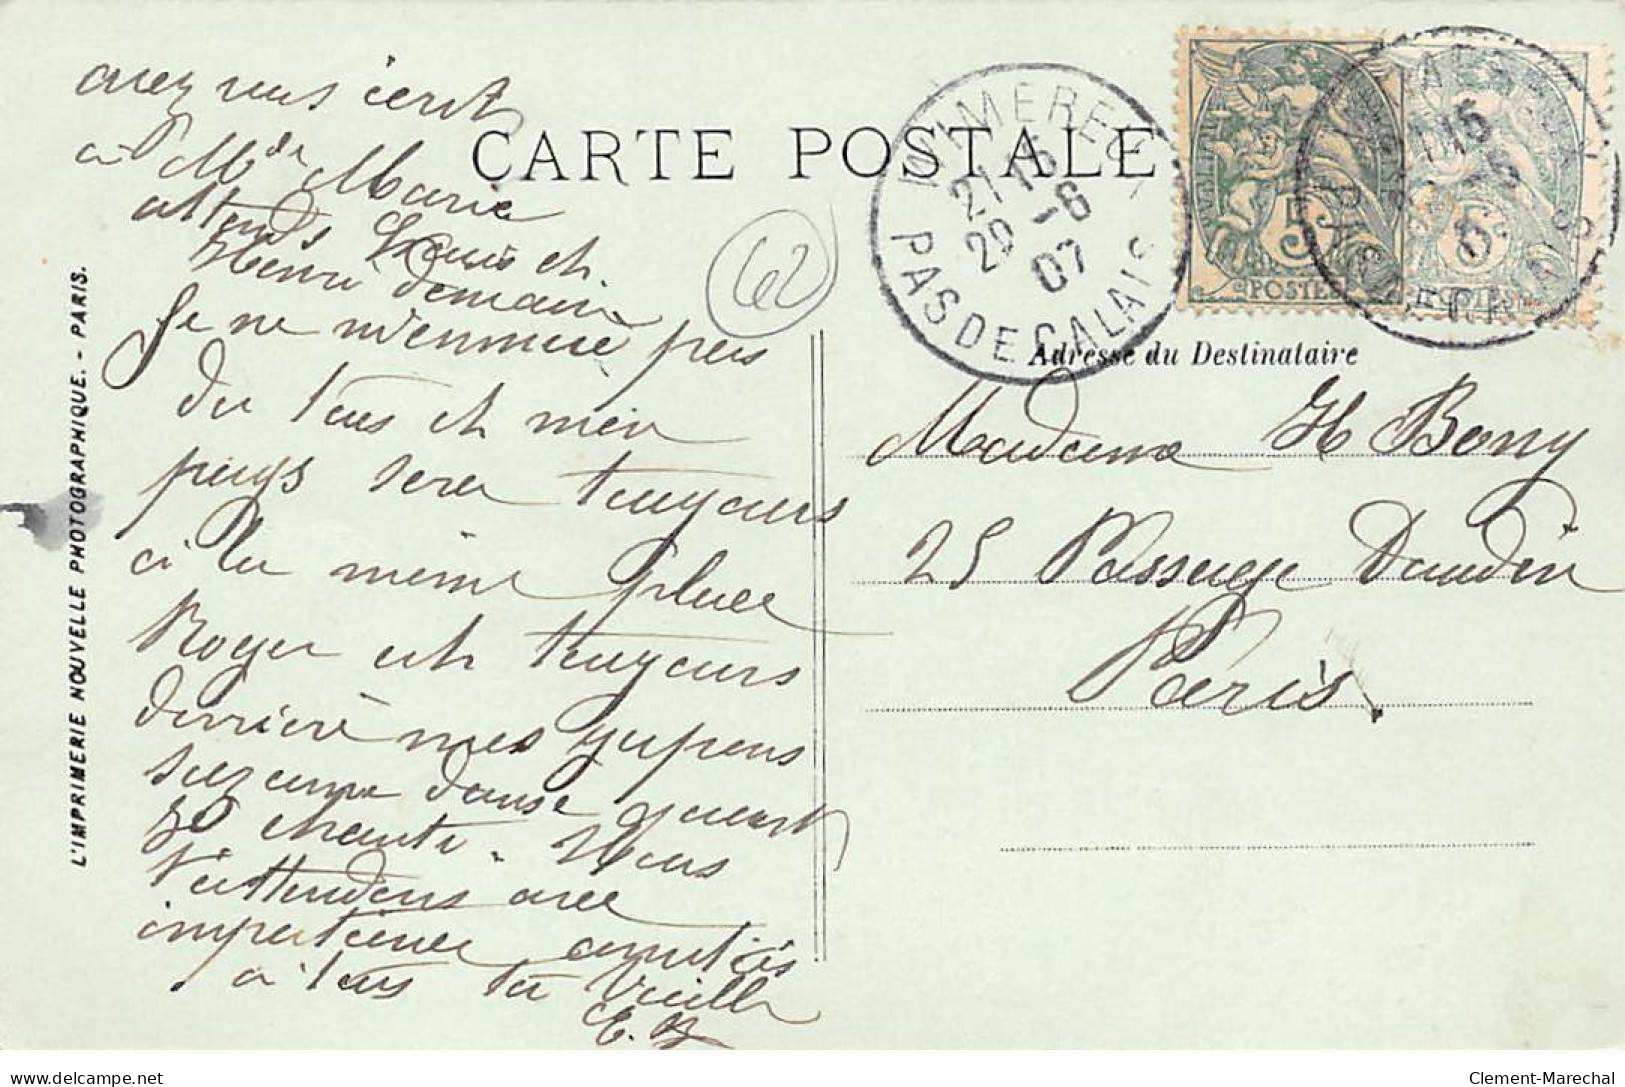 avez vous écrit
à Mde Marie
attends Louis et
Henri demain
Je ne m'ennuie pas
du tous et mon
pays sera toujours
à la même place
Roger est toujours
derrière mes jupons
suzanne danse quant
on chante. Nous
t'attendons avec
impatience amitiés
à tous ta vieille
E. B
CARTE POSTALE
62
WIMEREUX
21 15
20 -6
07
PAS DE CALAIS
5
POSTES
5
POSTES
Adresse du Destinataire
Madame H Bony
25 Passage Dandin
Paris.
L'IMPRIMERIE NOUVELLE PHOTOGRAPHIQUE. - PARIS.
delcampe.net
Clement-Marechal